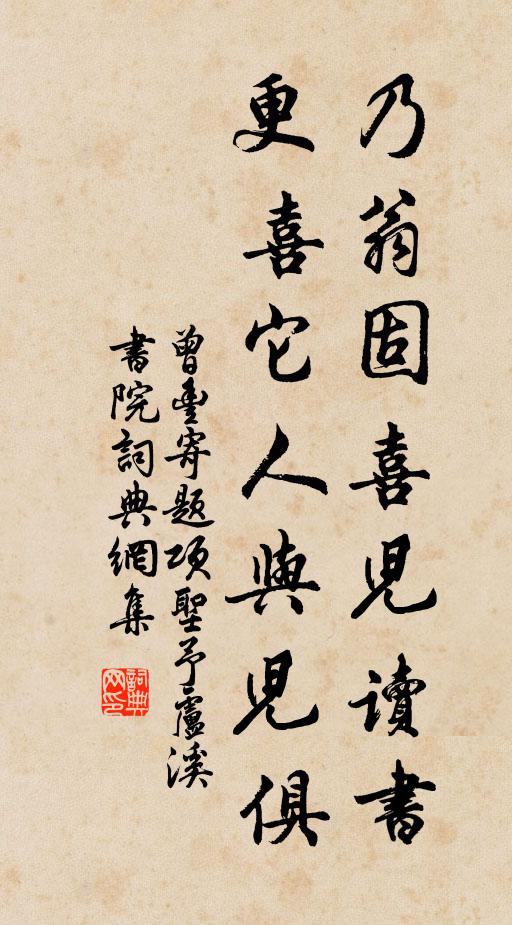 乃翁固喜兒讀書
更喜它人與兒俱
曾豐寄題項聖予盧溪
書院詞典網集
詞典網印